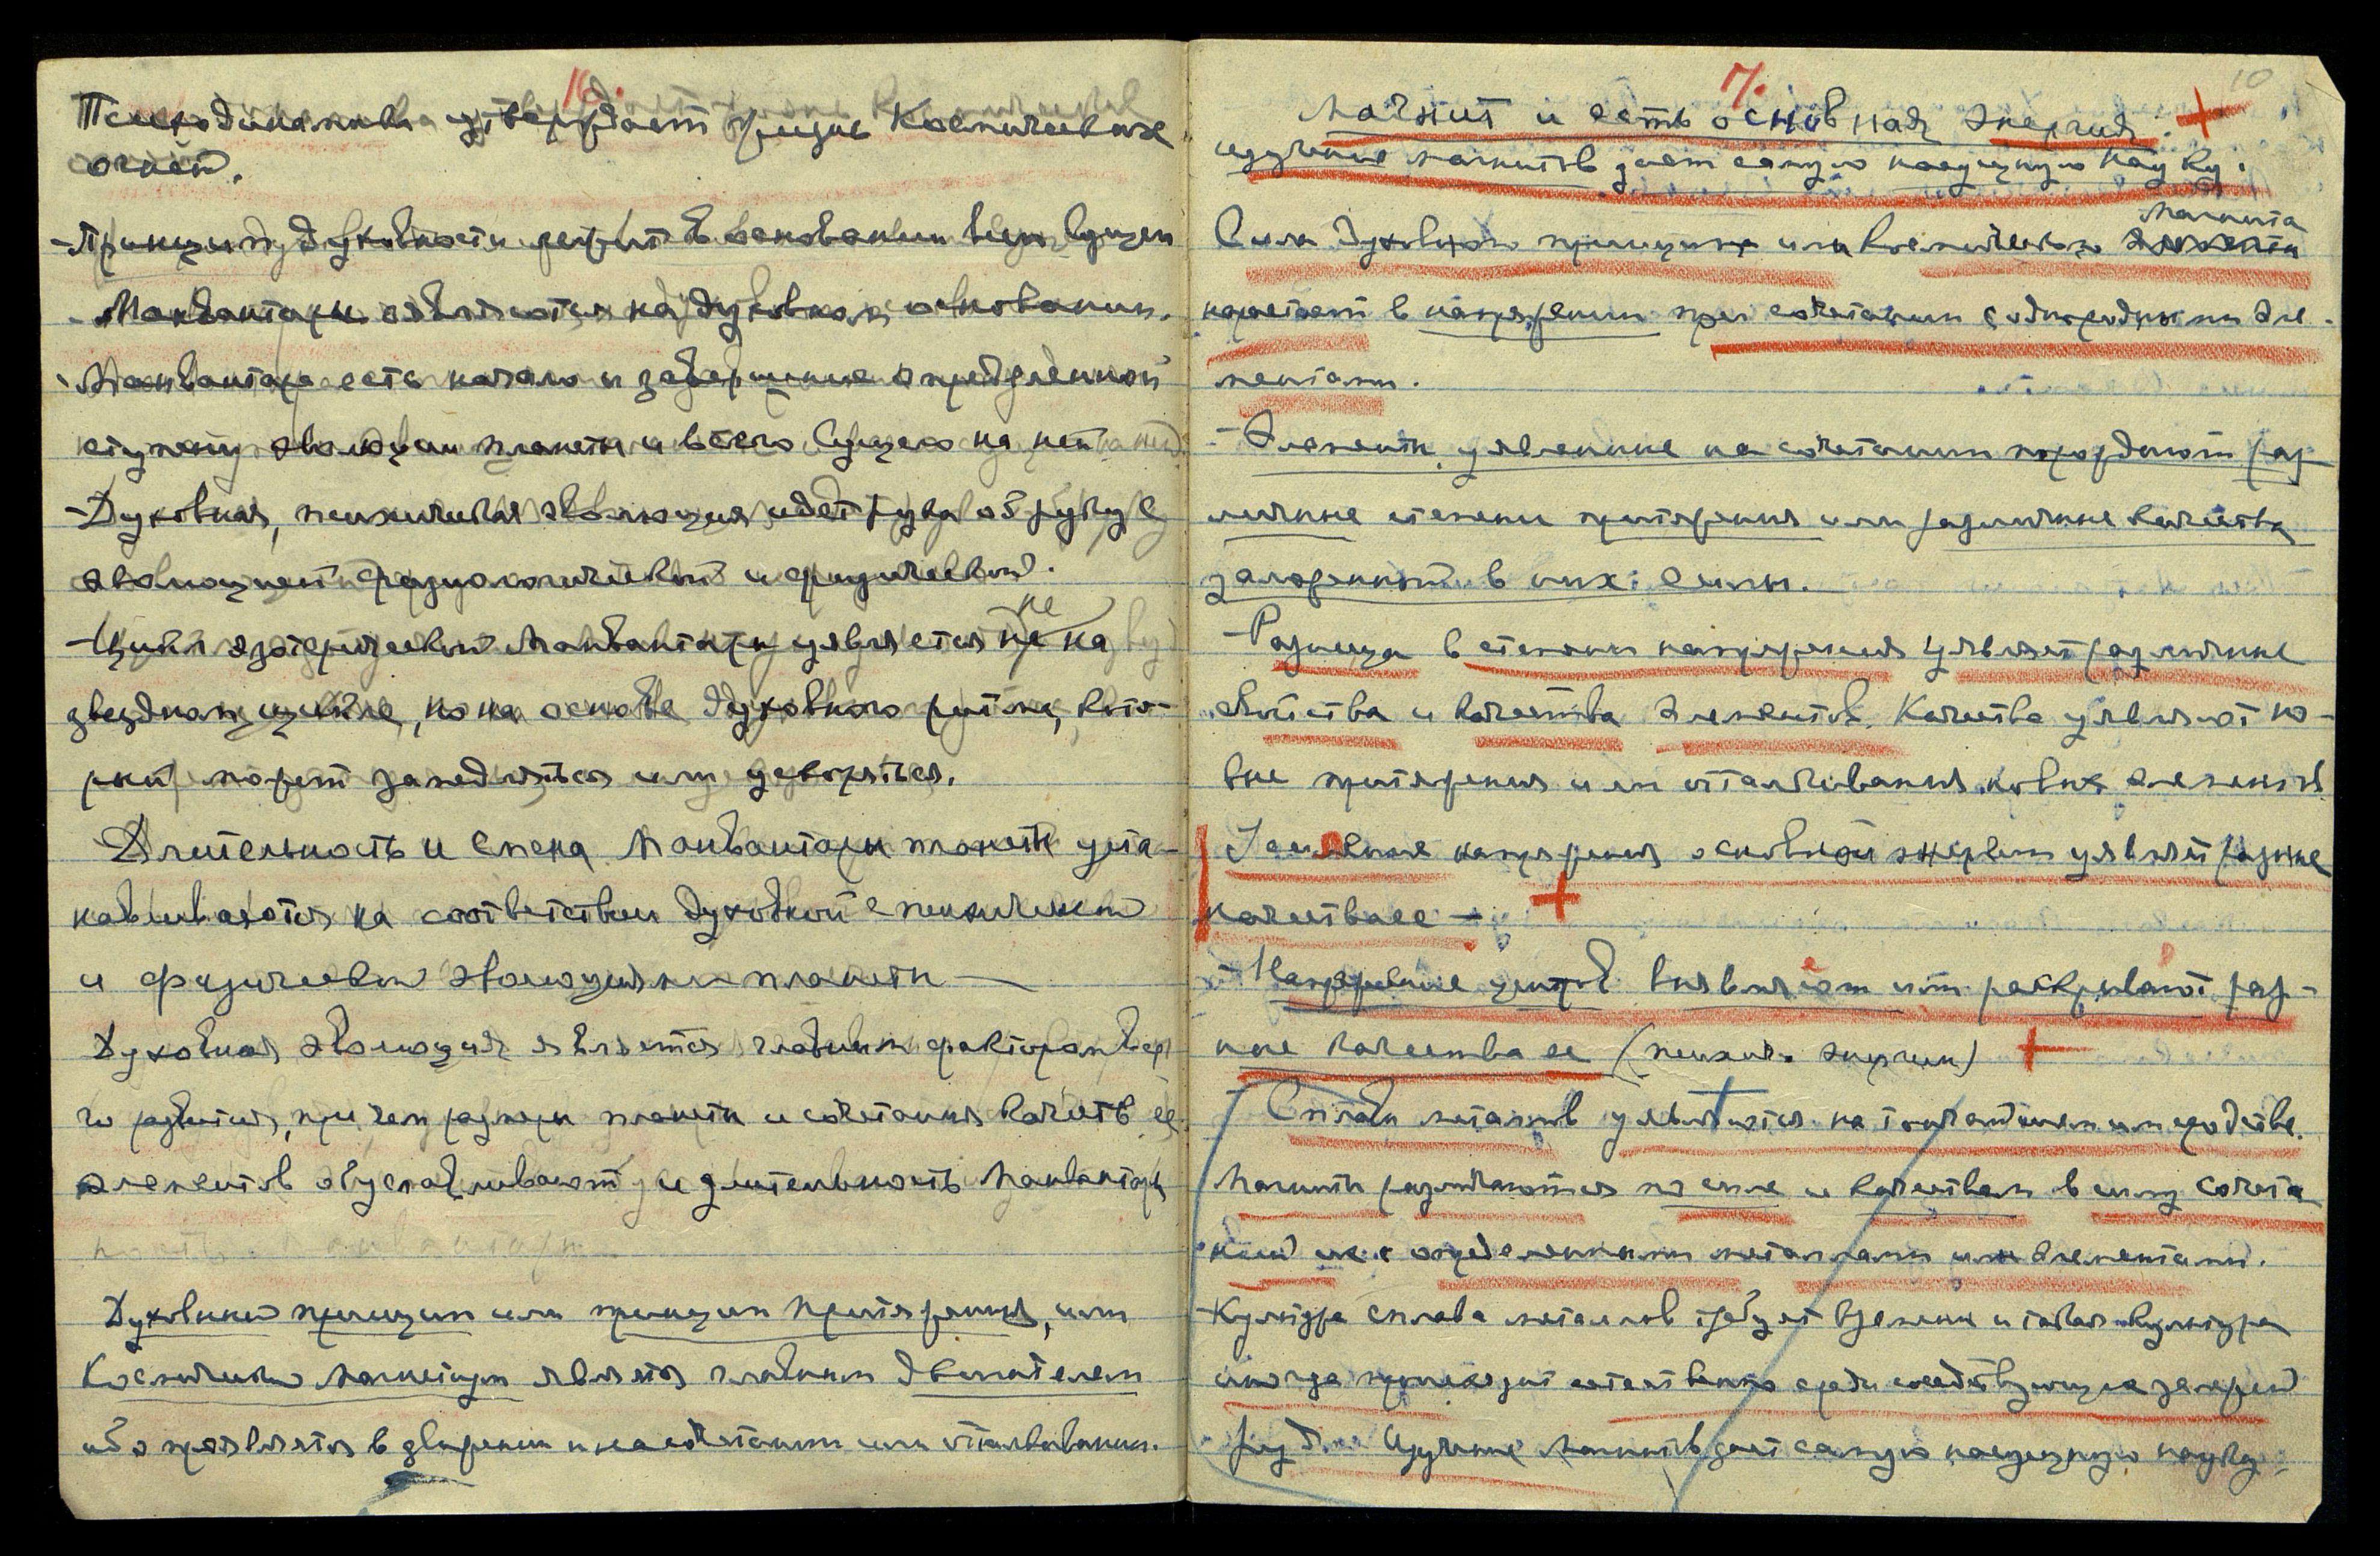 16.
Психодинамика утверждает Космических
огней.
- Принцип духовности лежит в основании всего Сущего
- Манвантары являются на духовном основании.
- Манвантара есть начало и завершение определенной
ступени эволюции планеты и всего Сущего на ней
- Духовная, психическая эволюция идет рука об руку с
эволюцией физиологической и физической.
- Цикл эзотерической Манвантары является не на
звездном цикле, но на основе духовного ритма, кото-
рый может замедляться или ускоряться.
Длительность и смена Манвантары планеты уста-
навливаются на соответствии духовной с психической
и физической эволюциями планеты —
Духовная эволюция является главным фактором
го развития, при чем размеры планеты и сочетания качеств ее
элементов обуславливают и длительность Манвантары
Духовный принцип или принцип притяжения, или
Космический Магнетизм является главным двигателем
ибо проявляется в движении и на сочетании или отталкивании.
17. 10
Магнит и есть основная энергия. +
изучение магнитов дает самую насущную науку.
Магнита
Сила духовного принципа или Космического
нарастает в напряжении при сочетании с однородными эле-
ментами.
- Элементы, уявленные на сочетании порождают раз-
личные степени притяжения или различные качества
заложенной в них силы.
- Разница в степени напряжения уявляет различные
свойства и качества элементов. Качества уявляют но-
вые притяжения или отталкивания новых элементов
Усиление напряжения основной энергии уявляет разные
качества ее — +
- Напряжение центров выявляют или раскрывают раз-
ные качества ее (психич. энергии) +
Сплавы металлов уявляются на тончайшем сродстве.
Магниты различаются по силе и качествам в силу сочета
ний их с определенными металлами или элементами.
Культура сплава металлов требует времени и такая культура
иногда происходит естественно среди залежей
руд. Изучение Магнитов дает самую насущную науку.